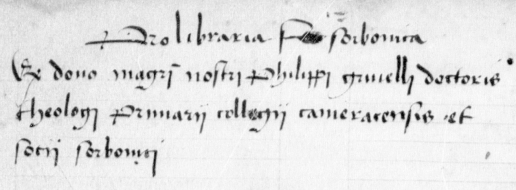 Pro libraria sorbonica
Ex dono magri nostri Philippi gruelli doctoris
theologi Primarii collegii cameracensis et
socii sorbonici